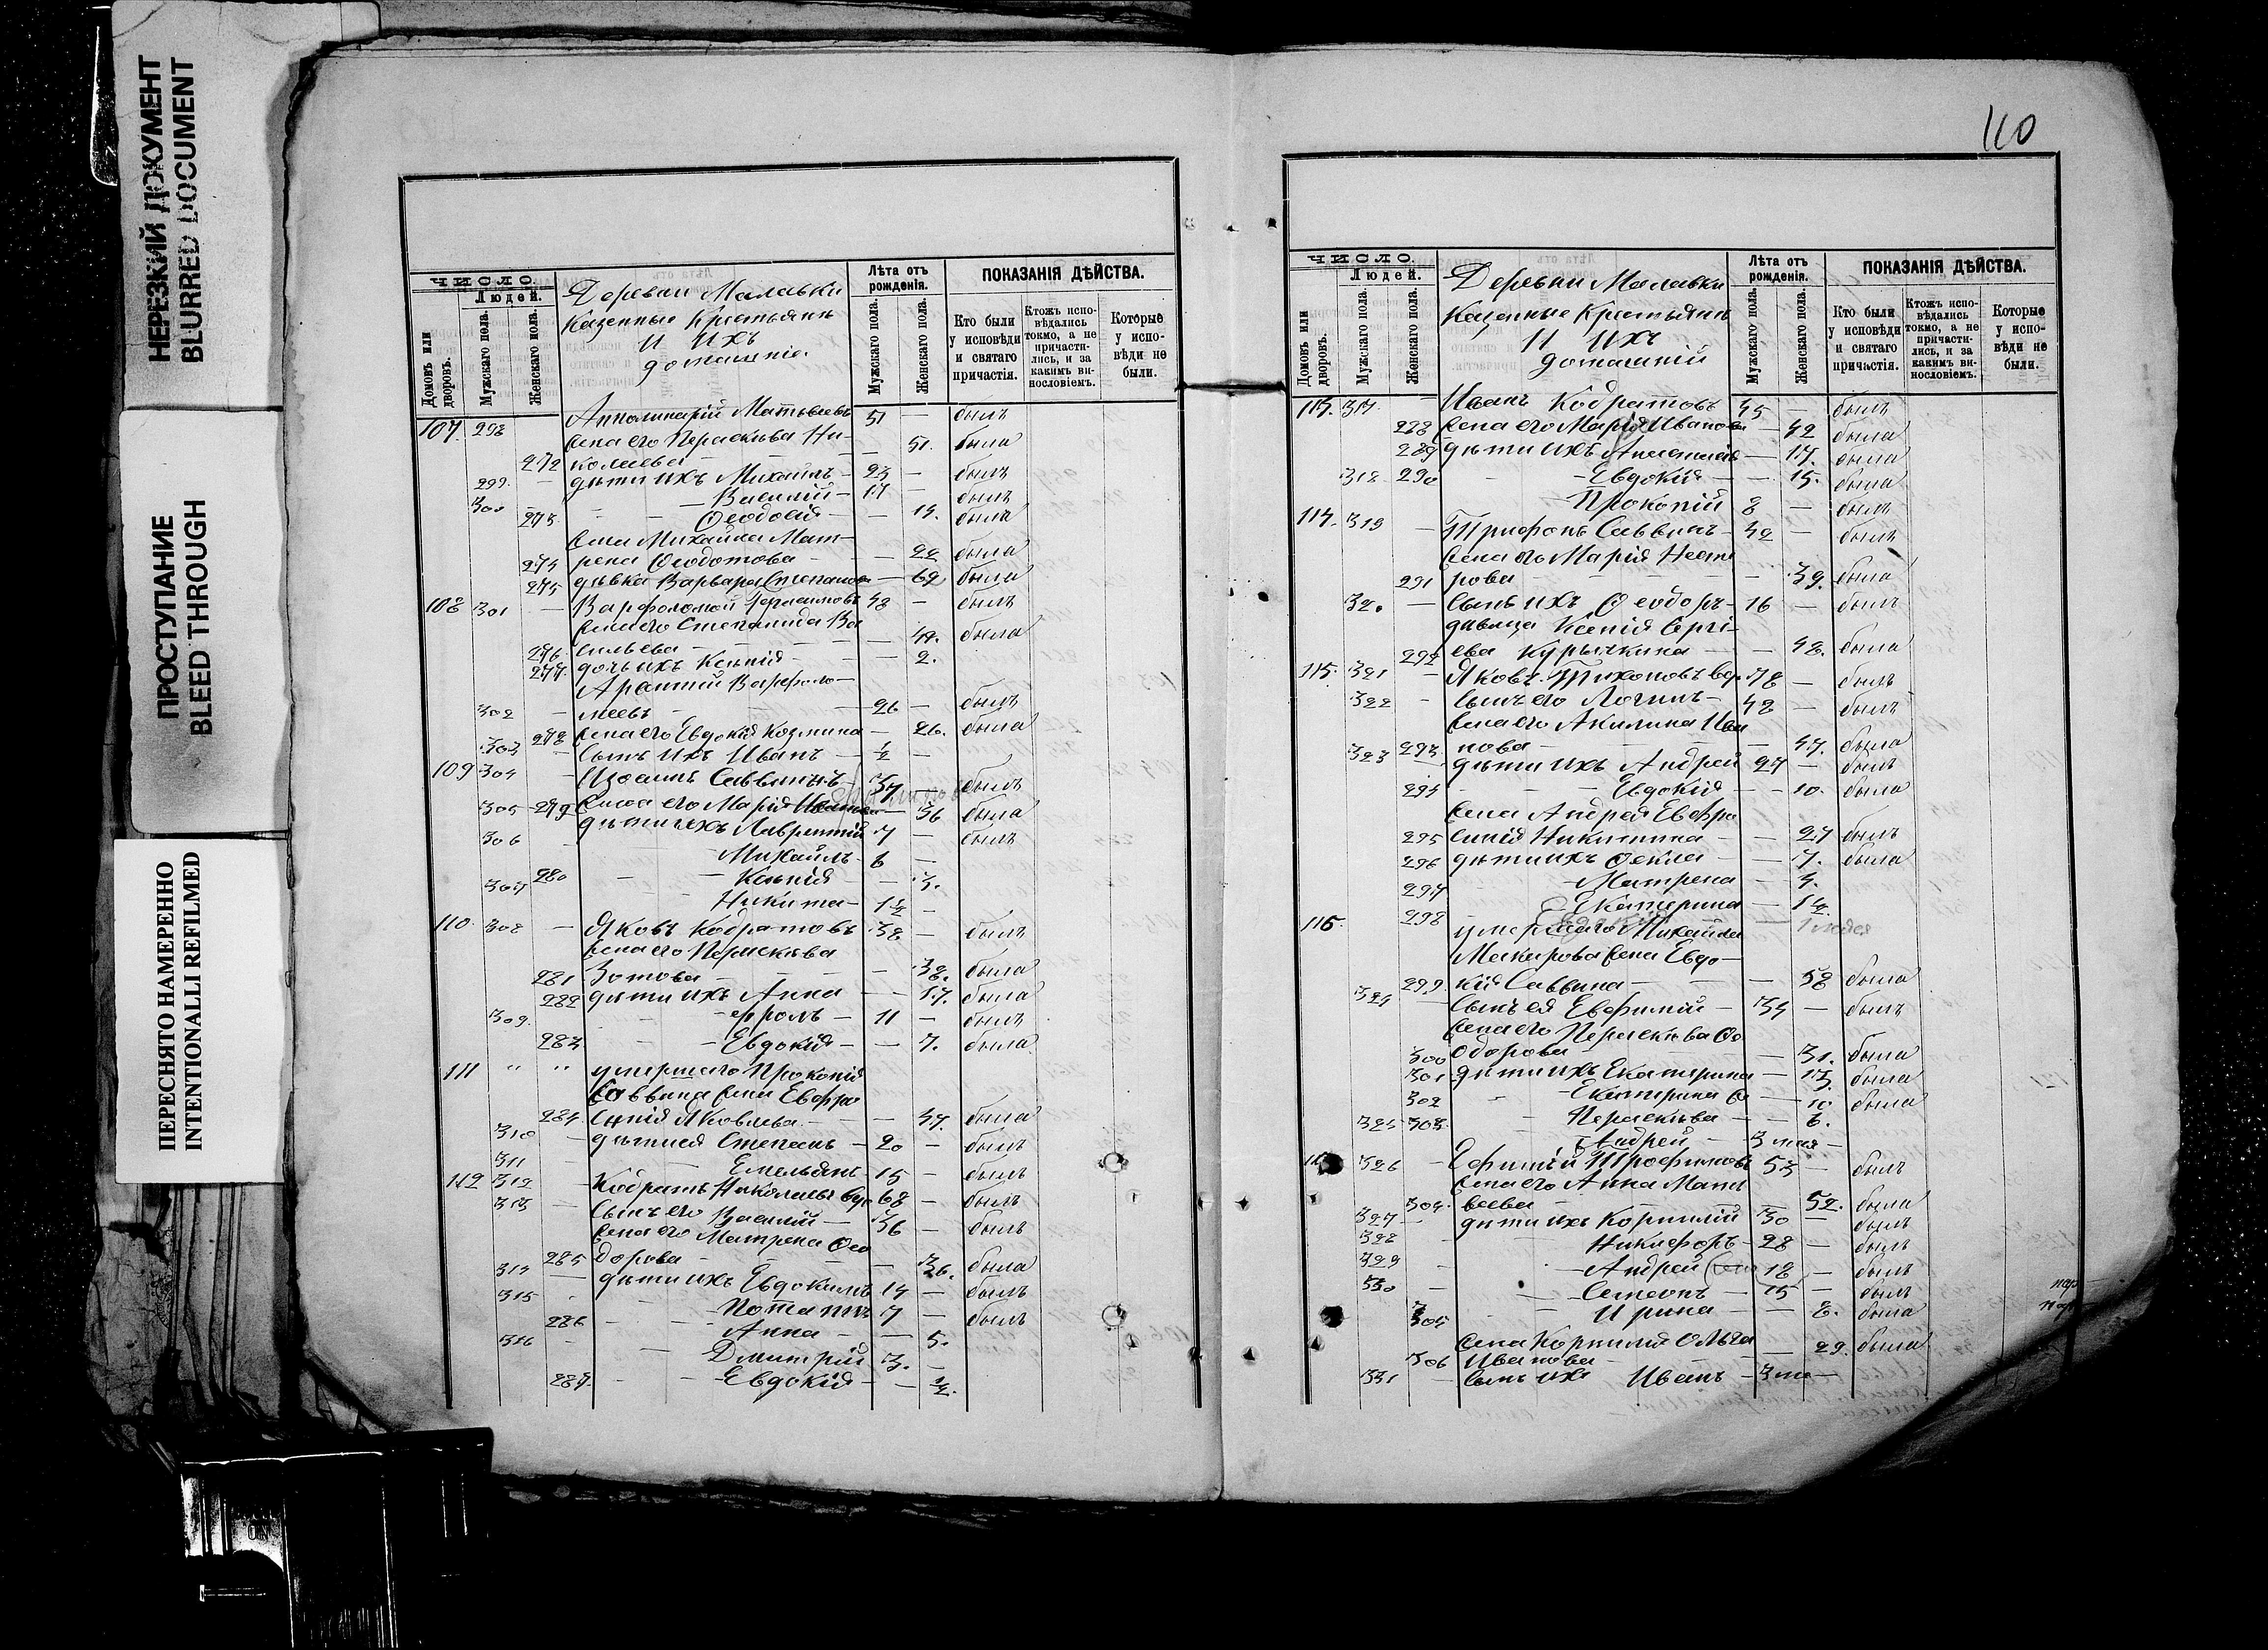 НЕРЕЗКИЙ ДОКУМЕНТ
BLURRED DOCUMENT
ПРОСТУПАНИЕ
BLEED THROUGH
ПЕРЕСНЯТО НАМЕРЕННО
INTENTIONALLI REFILMED
ЧИСЛО.
Людей.
Домовъ или дворовъ.
Мужскаго пола.
Женскаго пола.
Деревни Малавки
Казенные Крестьяне
и ихъ
домашніе.
Лѣта отъ рожденія.
Мужскаго пола.
Женскаго пола.
ПОКАЗАНІЯ ДѢЙСТВА.
Кто были у исповѣди и святаго причастія.
Ктожъ исповѣдались токмо, а не причастились, и за какимъ винословіемъ.
Которые у исповѣди не были.
107. 298 Апполинарій Матвѣевъ 51 — былъ
жена его Параскева Ни-
272 колаева — 51. была
299. дѣти ихъ Михаилъ — 23 — былъ
300 Василій — 17 — былъ
273. Ѳеодосія — 15. была
жена Михаила Мат-
274 рена Ѳеодотова — 22 была
275 дѣвка Варвара Степанова — 69 была
108 301 — Варфоломей 48 — былъ
жена его Степанида Ва
276 сильева — 47. была
277. дочь ихъ Ксенія — 2.
Варфоло-
302 — меевъ — 26 — былъ
278 жена его Евдокія Козмина — 26. была
303 сынъ ихъ Иванъ — ½ —
109 304 — Саввинъ 37 — былъ
279 жена его Марія — 36 была
305 дѣти ихъ Лаврентій 7 — былъ
306 Михаилъ — 6 —
280 — Ксенія — 3.
307 Никита — 1½ —
110. 308 — Яковъ Кодратовъ 38 — былъ
жена его Параскева
281 Зотова — 38. была
282 дѣти ихъ Анна — 17. была
309. — Фролъ — 11 — былъ
283 — Евдокія — 7. была
111 " " умершаго Прокопія
Саввина жена Евфро
284. синія Яковлева. — 47. была
310 — дѣти ея Степанъ — 20 — былъ
311 Емельянъ 15 — былъ
112 312 — Кодратъ Николаевъ вдо 68 — былъ
313 — сынъ его Василій — 36 — былъ
жена его Матрена Ѳео
285 дорова — 36. была
314 — дѣти ихъ Евдокимъ 14 — былъ
315 Потапъ 7 — былъ
286 — Анна — 5.
316 — Дмитрій 3. —
287. — Евдокія — ½.
110
ЧИСЛО.
Людей.
Домовъ или дворовъ.
Мужскаго пола.
Женскаго пола.
Деревни Малавки
Казенные Крестьяне
и ихъ
домашній
Лѣта отъ рожденія.
Мужскаго пола.
Женскаго пола.
ПОКАЗАНІЯ ДѢЙСТВА.
Кто были у исповѣди и святаго причастія.
Ктожъ исповѣдались токмо, а не причастились, и за какимъ винословіемъ.
Которые у исповѣди не были.
113. 317. — Иванъ Кодратовъ 45 — былъ
288 жена его Марія Иванова — 42 была
289 дѣти ихъ — 17. была
318 290 — Евдокія — 15. была
— Прокопій 8 — былъ
114. 319 — Трифонъ Саввинъ — 42 — былъ
жена его Марія Несте
291 рова — 39. была
320 — сынъ ихъ Ѳеодоръ — 16 — былъ
дѣвица Ксенія Сергі-
292 ева Курычкина — 48. была
115. 321 — Яковъ Тихоновъ вдо. 78 — былъ
322 — сынъ его Логинъ — 48 — былъ
жена его Акилина Ива
293. нова — 47. была
323 дѣти ихъ Андрей 27 — былъ
294 — Евдокія — 10. была
жена Андрея Евфро
295 синія Никитина — 27 былъ
296 дѣти ихъ Ѳекла — 7. была
297 — Матрена — 4.
298 — Екатерина — 1½.
116. умершаго Михаила
Макирова жена Евдо-
299. кія Саввина — 58 была
324 — сынъ ея Евфимій — 34 — былъ
жена его Параскева Ѳе
300 одорова — 31. была
301 дѣти ихъ Екатерина — 13. была
302 — Екатерина — 10 была
303 — Параскева — 6.
325 Андрей — 3 —
326 — Ефимій Трофимовъ 53 — былъ
жена его Анна Матв
304. веева — 52. была
327 — дѣти ихъ Корнилій 30 — былъ
328 Никифоръ — 28 — былъ
329 — Андрей 18 — былъ
330 — Семенъ — 15 — былъ
305 — Ирина — 8. была
жена Корнилія Ольга
306 Иванова — 29. была
331 — сынъ ихъ Иванъ — 3 —